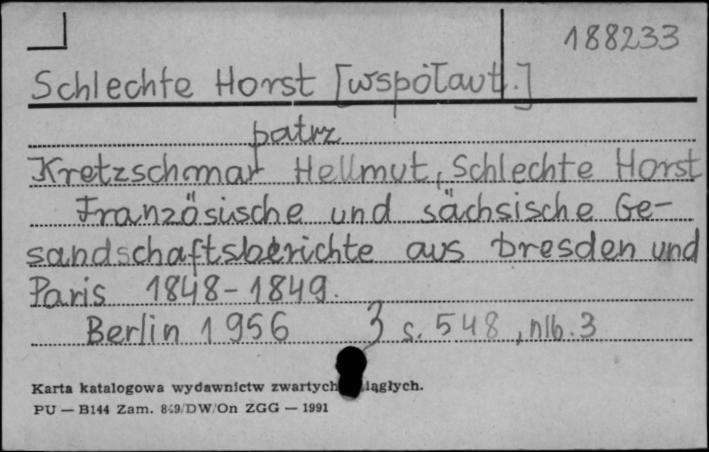 188233
Schlechte Horst [współaut.]
patrz
Kretzschmar Hellmut, Schlechte Horst
Französische und sächsische Ge-
sandschaftsberichte aus Dresden und
Paris 1848-1849.
Berlin 1956 s. 548, nlb. 3
Karta katalogowa wydawnictw zwartych iągłych.
PU — B144 Zam. 849/DW/On ZGG — 1991